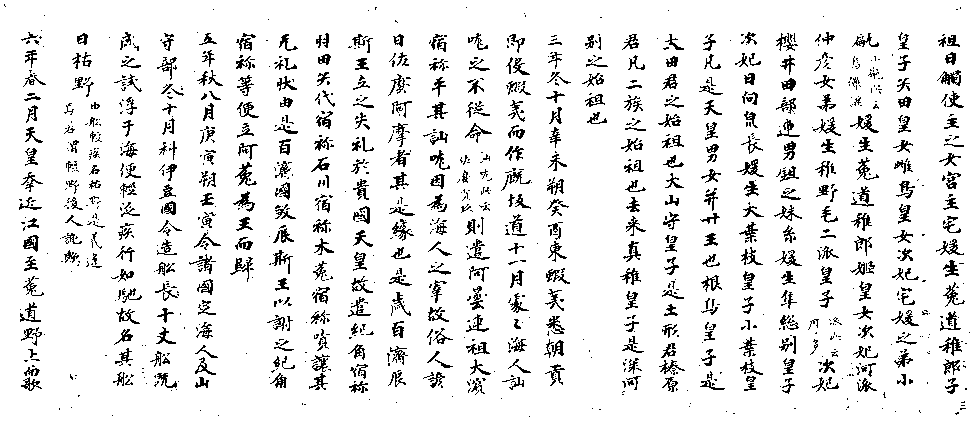 祖日觸使主之女宮主宅媛生菟道稚郎子
皇子矢田皇女雌鳥皇女次妃宅媛之弟小
甂小甂此云烏儺謎媛生菟道稚郎姬皇女次妃河派
仲彦女弟媛生稚野毛二派皇子派此云多次妃
櫻井田部連男鉏之妹糸媛生隼総別皇子
次妃日向泉長媛生大葉枝皇子小葉枝皇
子凡是天皇男女并廿王也根鳥皇子是
大田君之始祖也大山守皇子是土形君榛原
君凡二族之始祖也去来真稚皇子是深河
別之始祖也
三年冬十月辛未朔癸酉東蝦夷悉朝貢
即役蝦夷而作厩坂道十一月處々海人訕
哤之不従命訕哤此云佐麼賣玖則遣阿曇連祖大濱
宿祢平其訕哤因為海人之宰故俗人諺
曰佐麼阿摩者其是緣也是歳百濟辰
斯王立之失礼於貴國天皇故遣紀角宿祢
羽田矢代宿祢石川宿祢木菟宿祢嘖讓其
无礼状由是百濟國煞辰斯王以謝之紀角
宿祢等便立阿菟為王而歸
五年秋八月庚寅朔壬寅令諸國定海人及山
守部冬十月科伊豆國令造舩長十丈舩既
成之試浮于海便軽泛疾行如馳故名其舩
曰枯野由舩軽疾名枯野是義違焉若謂軽野後人訛歟
六年春二月天皇幸近江國至菟道野上而歌